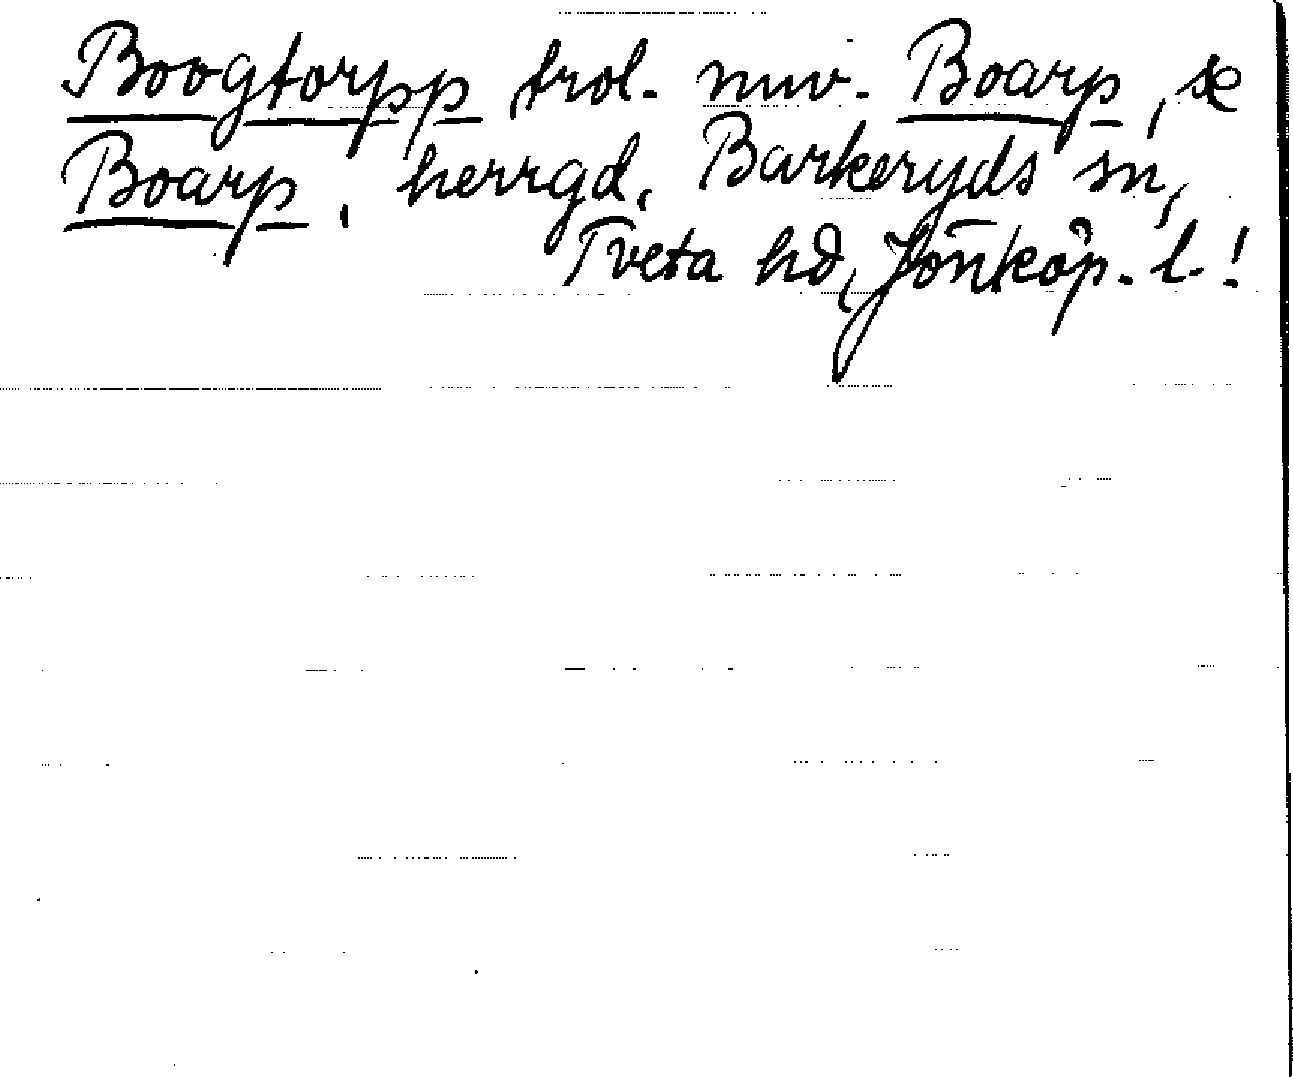 Boogtorpp, trol. nuv. Boarp, se
Boarp, herrgd, Barkeryds sn,
Tveta hd, Jönköp. l.!